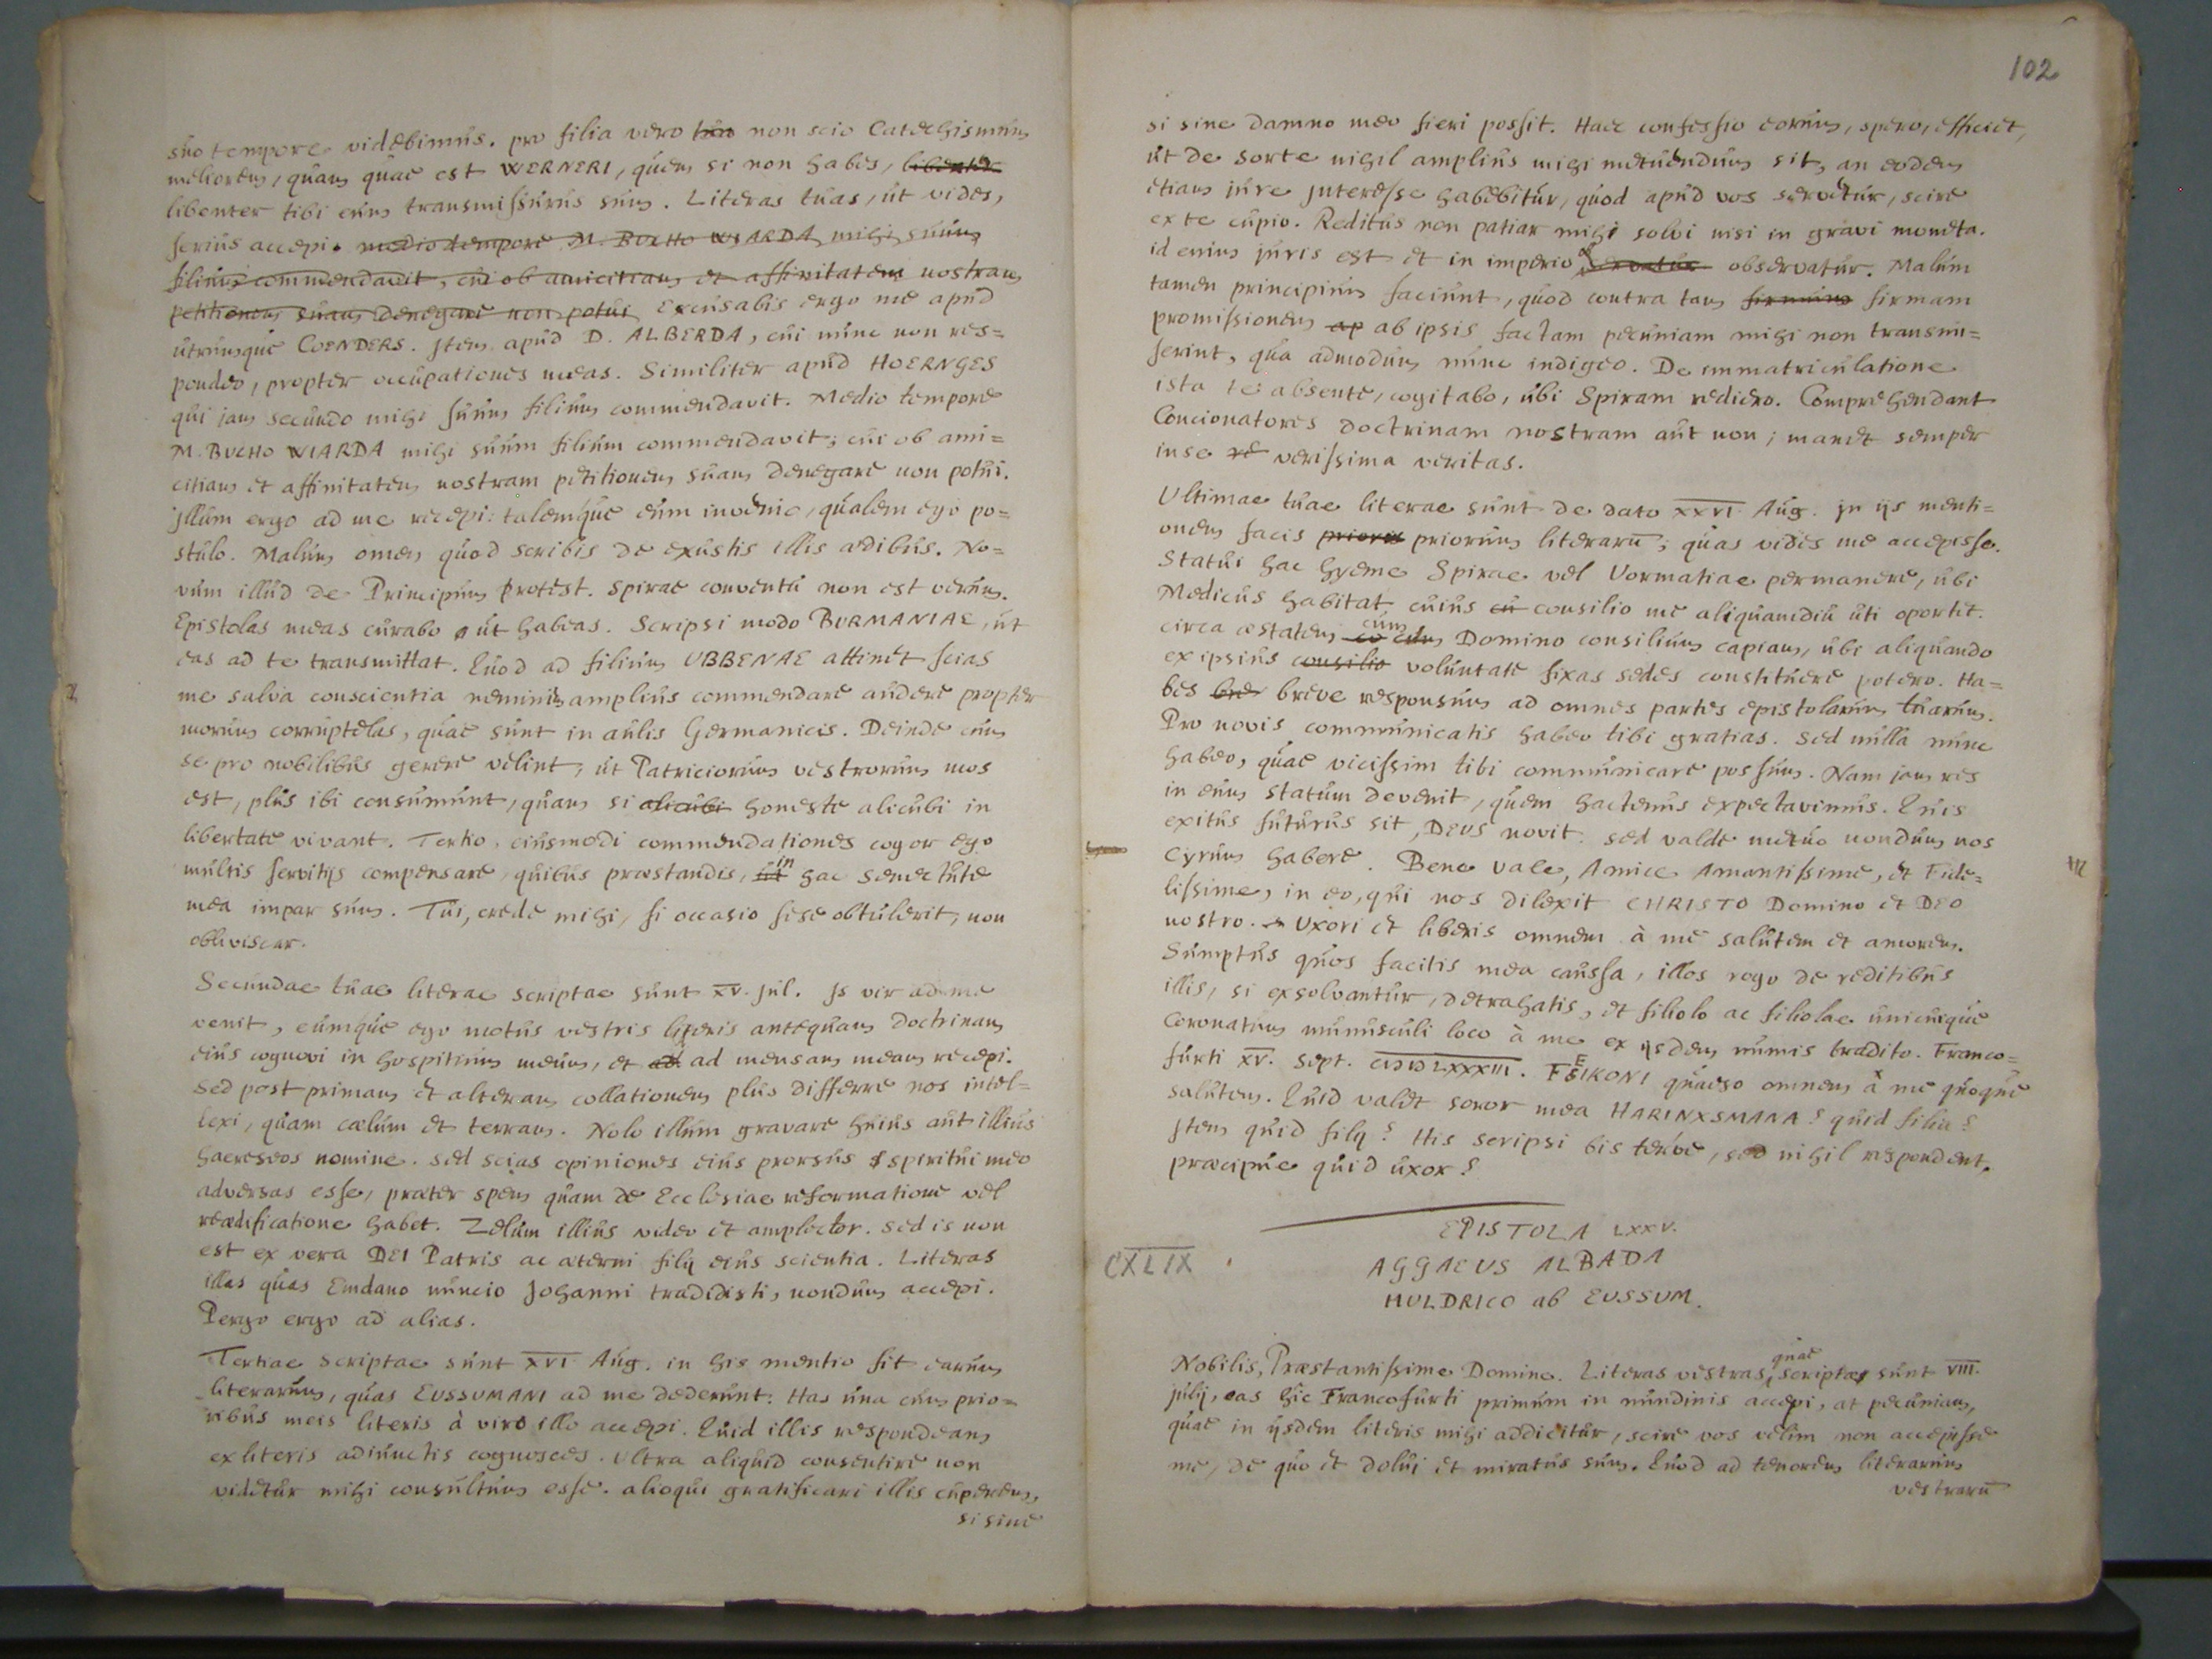 suo tempore videbimus. pro filia vero tua non scio Catechismum
meliorem, quam quae est WERNERI, quem si non habes, libenter
libenter tibi eum transmissurus sum. Literas tuas, ut vides,
serius accepi. medio tempore M. BUCHO WIARDA mihi suum
filium commendavit, cui ob amicitiam et affinitatem nostram
petitionem suam denegare non potui. Excusabis ergo me apud
utrumque COENDERS. Jtem apud D. ALBERDA, cui nunc non res=
pondeo, propter occupationes meas. Similiter apud HOERNGES
qui jam secundo mihi suum filium commendavit. Medio tempore
M. BUCHO WIARDA mihi suum filium commendavit; cui ob ami=
citiam et affinitatem nostram petitionem suam denegare non potui.
jllum ergo ad me recepi: talemque eum invenio, qualem ego po=
stulo. Malum omen quod scribis de exustis illis aedibus. No=
vum illud de Principum Protest. Spirae conventu non est verum.
Epistolas meas curabo ut habeas. Scripsi modo BURMANIAE, ut
eas ad te transmittat. Quod ad filium UBBENAE attinet scias
me salva conscientia neminem amplius commendare audere propter
morum corruptelas, quae sunt in aulis Germanicis. Deinde cum
se pro nobilibus gerere velint, ut Patriciorum vestrorum mos
est, plus ibi consumunt, quam si alicubi honeste alicubi in
libertate vivant. Tertio, eiusmodi commendationes cogor ego
multis servitijs compensare, quibus praestandis, ut in hac senectute
mea impar sum. Tui, crede mihi, si occasio sese obtulerit, non
obliviscar.
Secundae tuae literae scriptae sunt XV. Jul. Js vir ad me
venit, eumque ego motus vestris literis antequam doctrinam
eius cognovi in hospitium meum, et ad ad mensam meam recepi.
Sed post primam et alteram collationem plus differre nos intel=
lexi, quam caelum et terram. Nolo illum gravare huius aut illius
haereseos nomine. sed scias opiniones eius prorsus spiritui meo
adversas esse, praeter spem quam de Ecclesiae reformatione vel
reaedificatione habet. Zelum illius video et amplector. sed is non
est ex vera DEI Patris ac aeterni filij eius scientia. Literas
illas quas Emdano nuncio Johanni tradidisti, nondum accepi.
Pergo ergo ad alias.
Tertiae scriptae sunt XVI Aug. in his mentio fit earum
literarum, quas EUSSUMANI ad me dederunt. Has una cum prio=
ribus meis literis à viro illo accepi. Quid illis respondeam
ex literis adiunctis cognosces. Ultra aliquid consentire non
videtur mihi consultum esse. alioqui gratificari illis cuperem,
si sine
102
si sine damno meo fieri possit. Haec confessio eorum, spero, efficiet,
ut de sorte nihil amplius mihi metuendum sit, an eodem
etiam jure jnteresse habebitur, quod apud vos servetur, scire
ex te cupio. Reditus non patiar mihi solvi nisi in gravi moneta.
id enim juris est et in imperio servatur observatur. Malum
tamen principium faciunt, quod contra tam firmum firmam
promissionem ap ab ipsis factam pecuniam mihi non transmi=
serint, qua admodum nunc indigeo. De immatriculatione
ista te absente, cogitabo, ubi Spiram rediero. Comprehendant
Concionatores doctrinam nostram aut non; manet semper
in se re verissima veritas.
Ultimae tuae literae sunt de dato XXVI. Aug. jn ijs menti=
onem facis priorum literarū; quas vides me accepisse.
Statui hac hyeme Spirae vel Vormatiae permanere, ubi
Medicus habitat, cuius cu consilio me aliquamdiu uti oportet.
circa aestatem cum Domino consilium capiam, ubi aliquando
ex ipsius consilio voluntate fixas sedes constituere potero. Ha=
bes bre breve responsum ad omnes partes epistolarum tuarum.
Pro novis communicatis habeo tibi gratias. Sed nulla nunc
habeo, quae vicissim tibi communicare possum. Nam jam res
in eum statum devenit, quem hactenus expectavimus. Quis
exitus futurus sit, DEUS novit. sed valde metuo nondum nos
Cyrum habere. Bene vale, Amice Amantissime, et Fide=
lissime, in eo, qui nos dilexit CHRISTO Domino et DEO
nostro. Uxori et liberis omnem à me salutem et amorem.
Sumptus quos facitis mea caussa, illos rogo de reditibus
illis, si exsolvantur, detrahatis, et filiolo ac filiolae unicuique
Coronatum munusculi loco à me ex ijsdem numis tradito. Franco=
furti XV. Sept. CIↃIↃLXXXIII. FEIKONI quaeso omnem à me quoque
salutem. Quid valet soror mea HARINXSMANA? quid filia?
Jtem quid filij? His scripsi bis terve, sed nihil respondent.
praecipue quid uxor?
EPISTOLA LXXV.
CXLIX
AGGAEUS ALBADA
HULDRICO ab EUSSUM.
Nobilis, Praestantissime Domine. Literas vestras, quae scriptae sunt VIII.
julij, eas hic Francofurti primum in nundinis accepi, at pecuniam,
quae in ijsdem literis mihi addicitur, scire vos velim non accepisse
me, de quo et dolui et miratus sum. Quod ad tenorem literarum
vestrarū